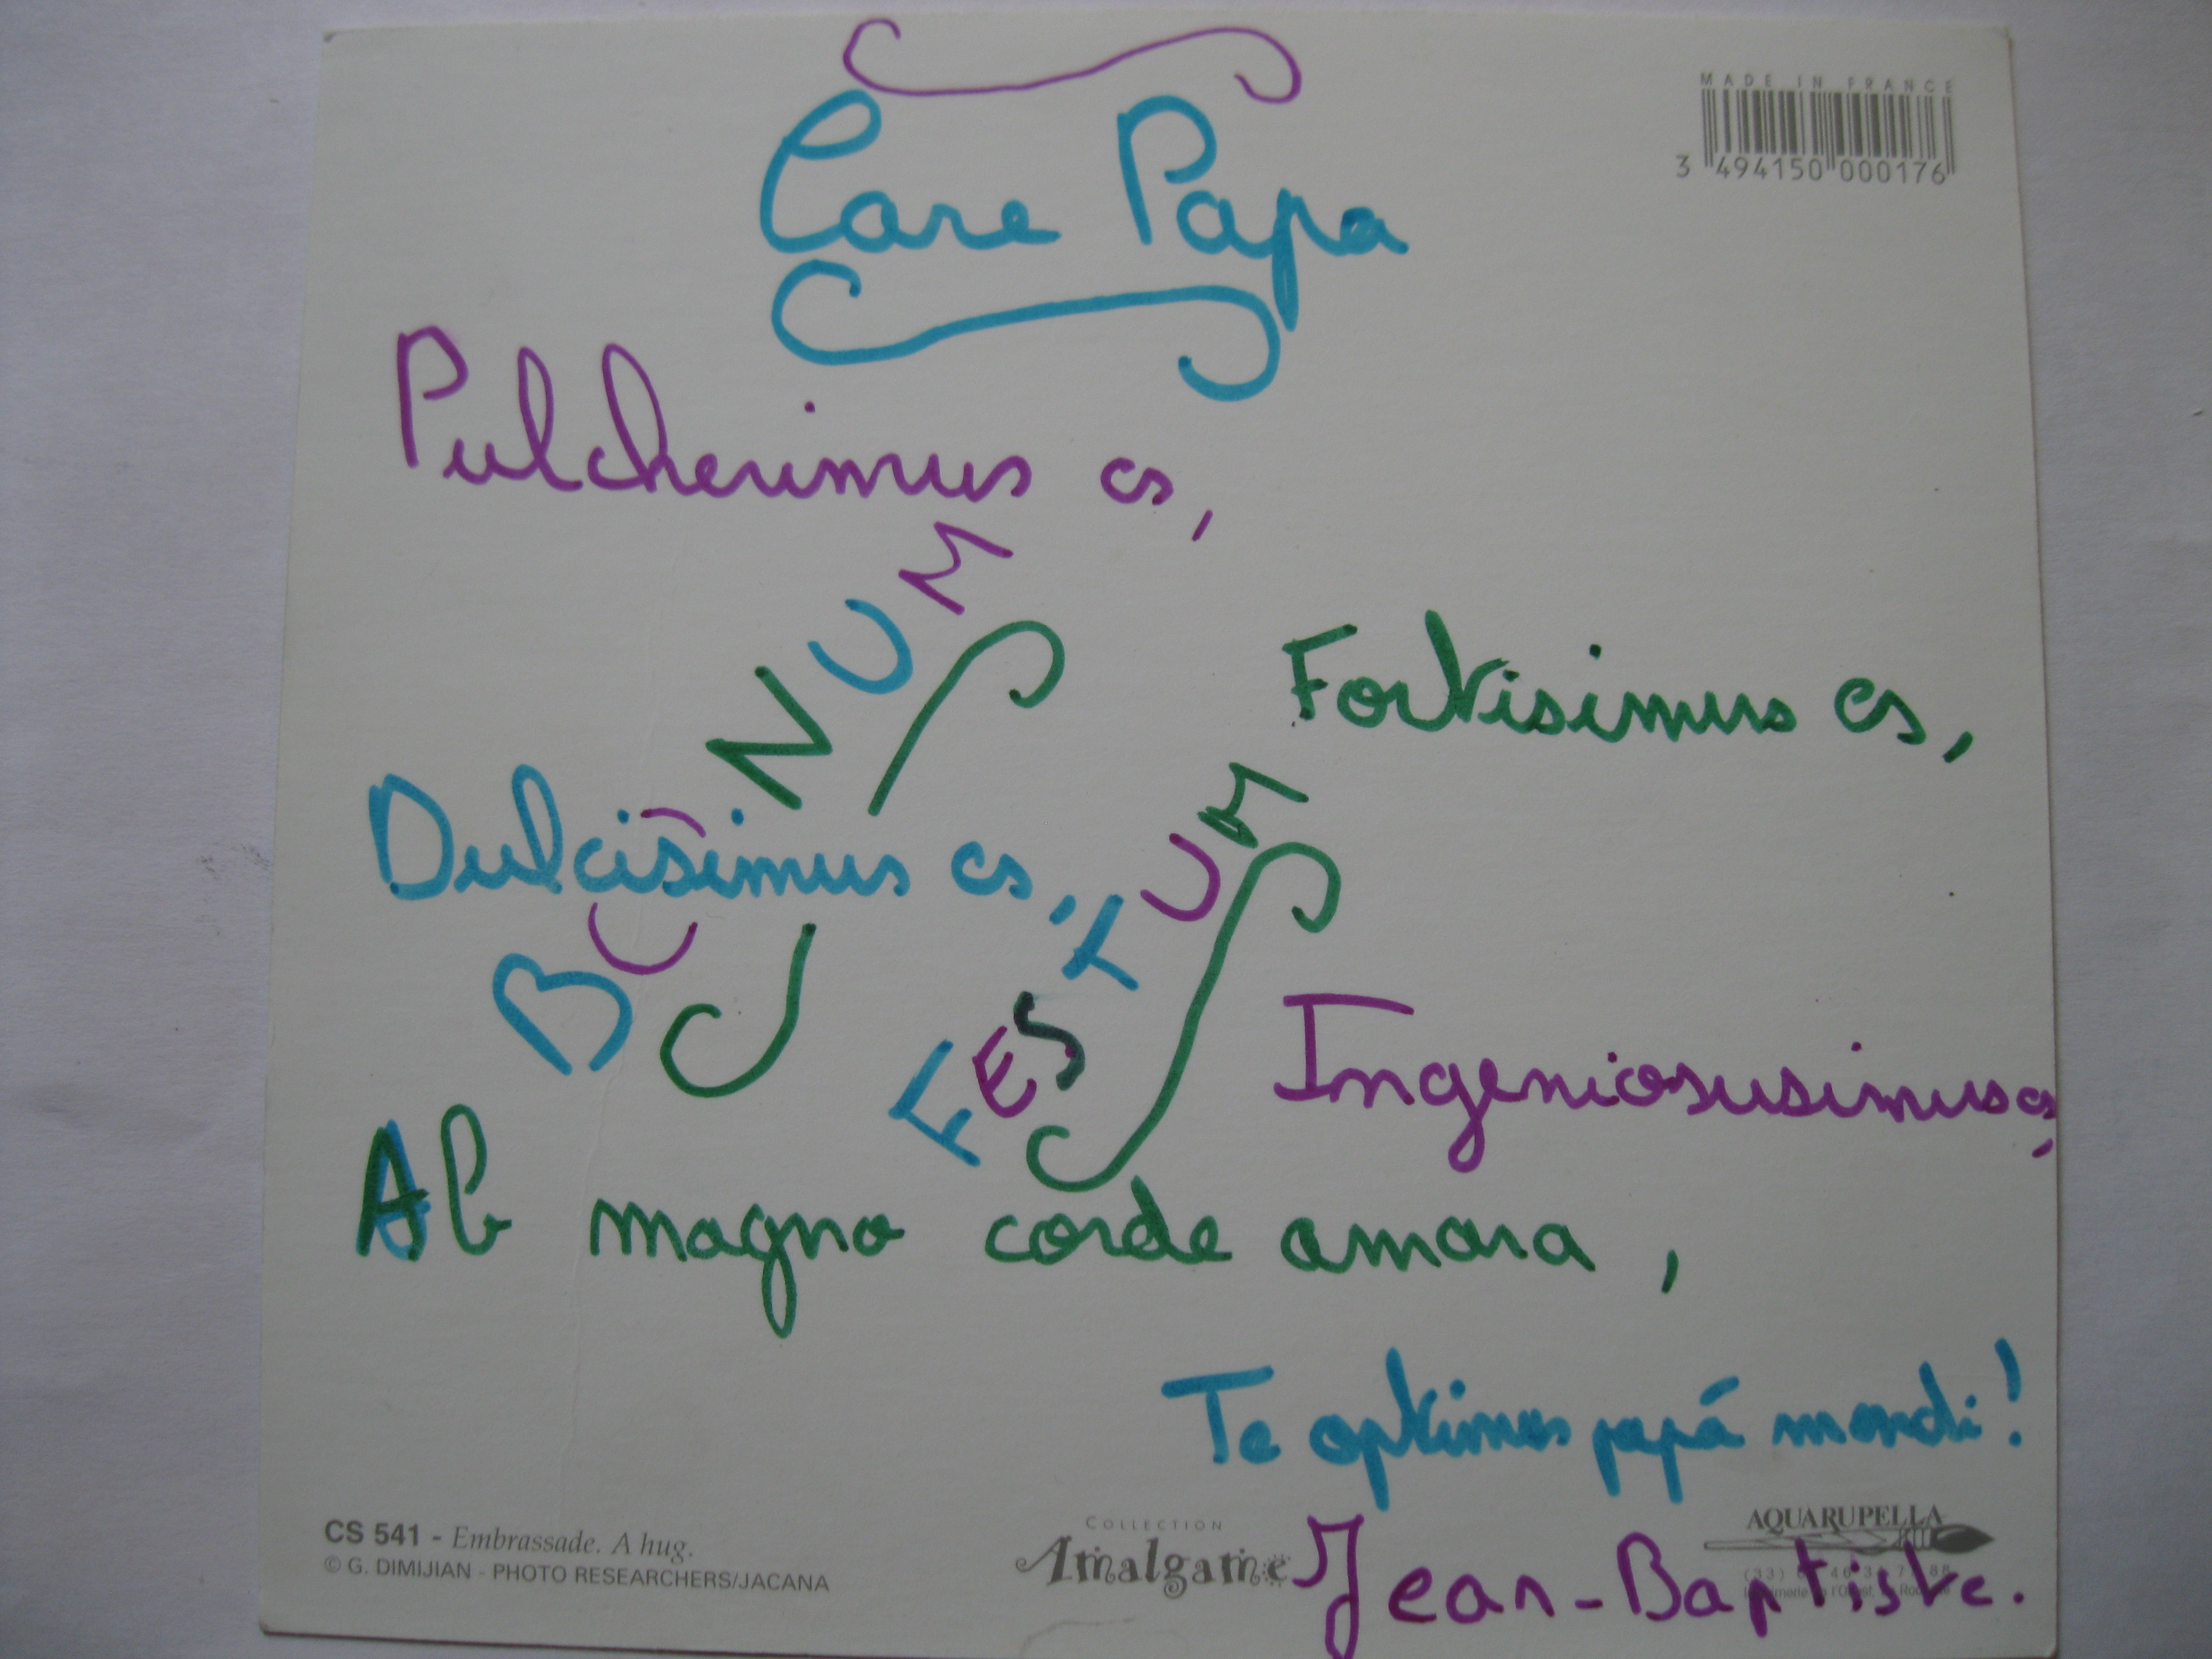 MADE IN FRANCE
3 494150 000176
Care Papa
Pulcherimus es,
BONUM
Fortisimus es,
Dulcisimus es,
FESTUM
Ingeniosusimus es,
Ab magno corde amara,
Te optimus papá mondi!
Jean-Baptiste.
CS 541 - Embrassade. A hug.
© G. DIMIJIAN - PHOTO RESEARCHERS/JACANA
COLLECTION
Amalgame
AQUARUPELLA